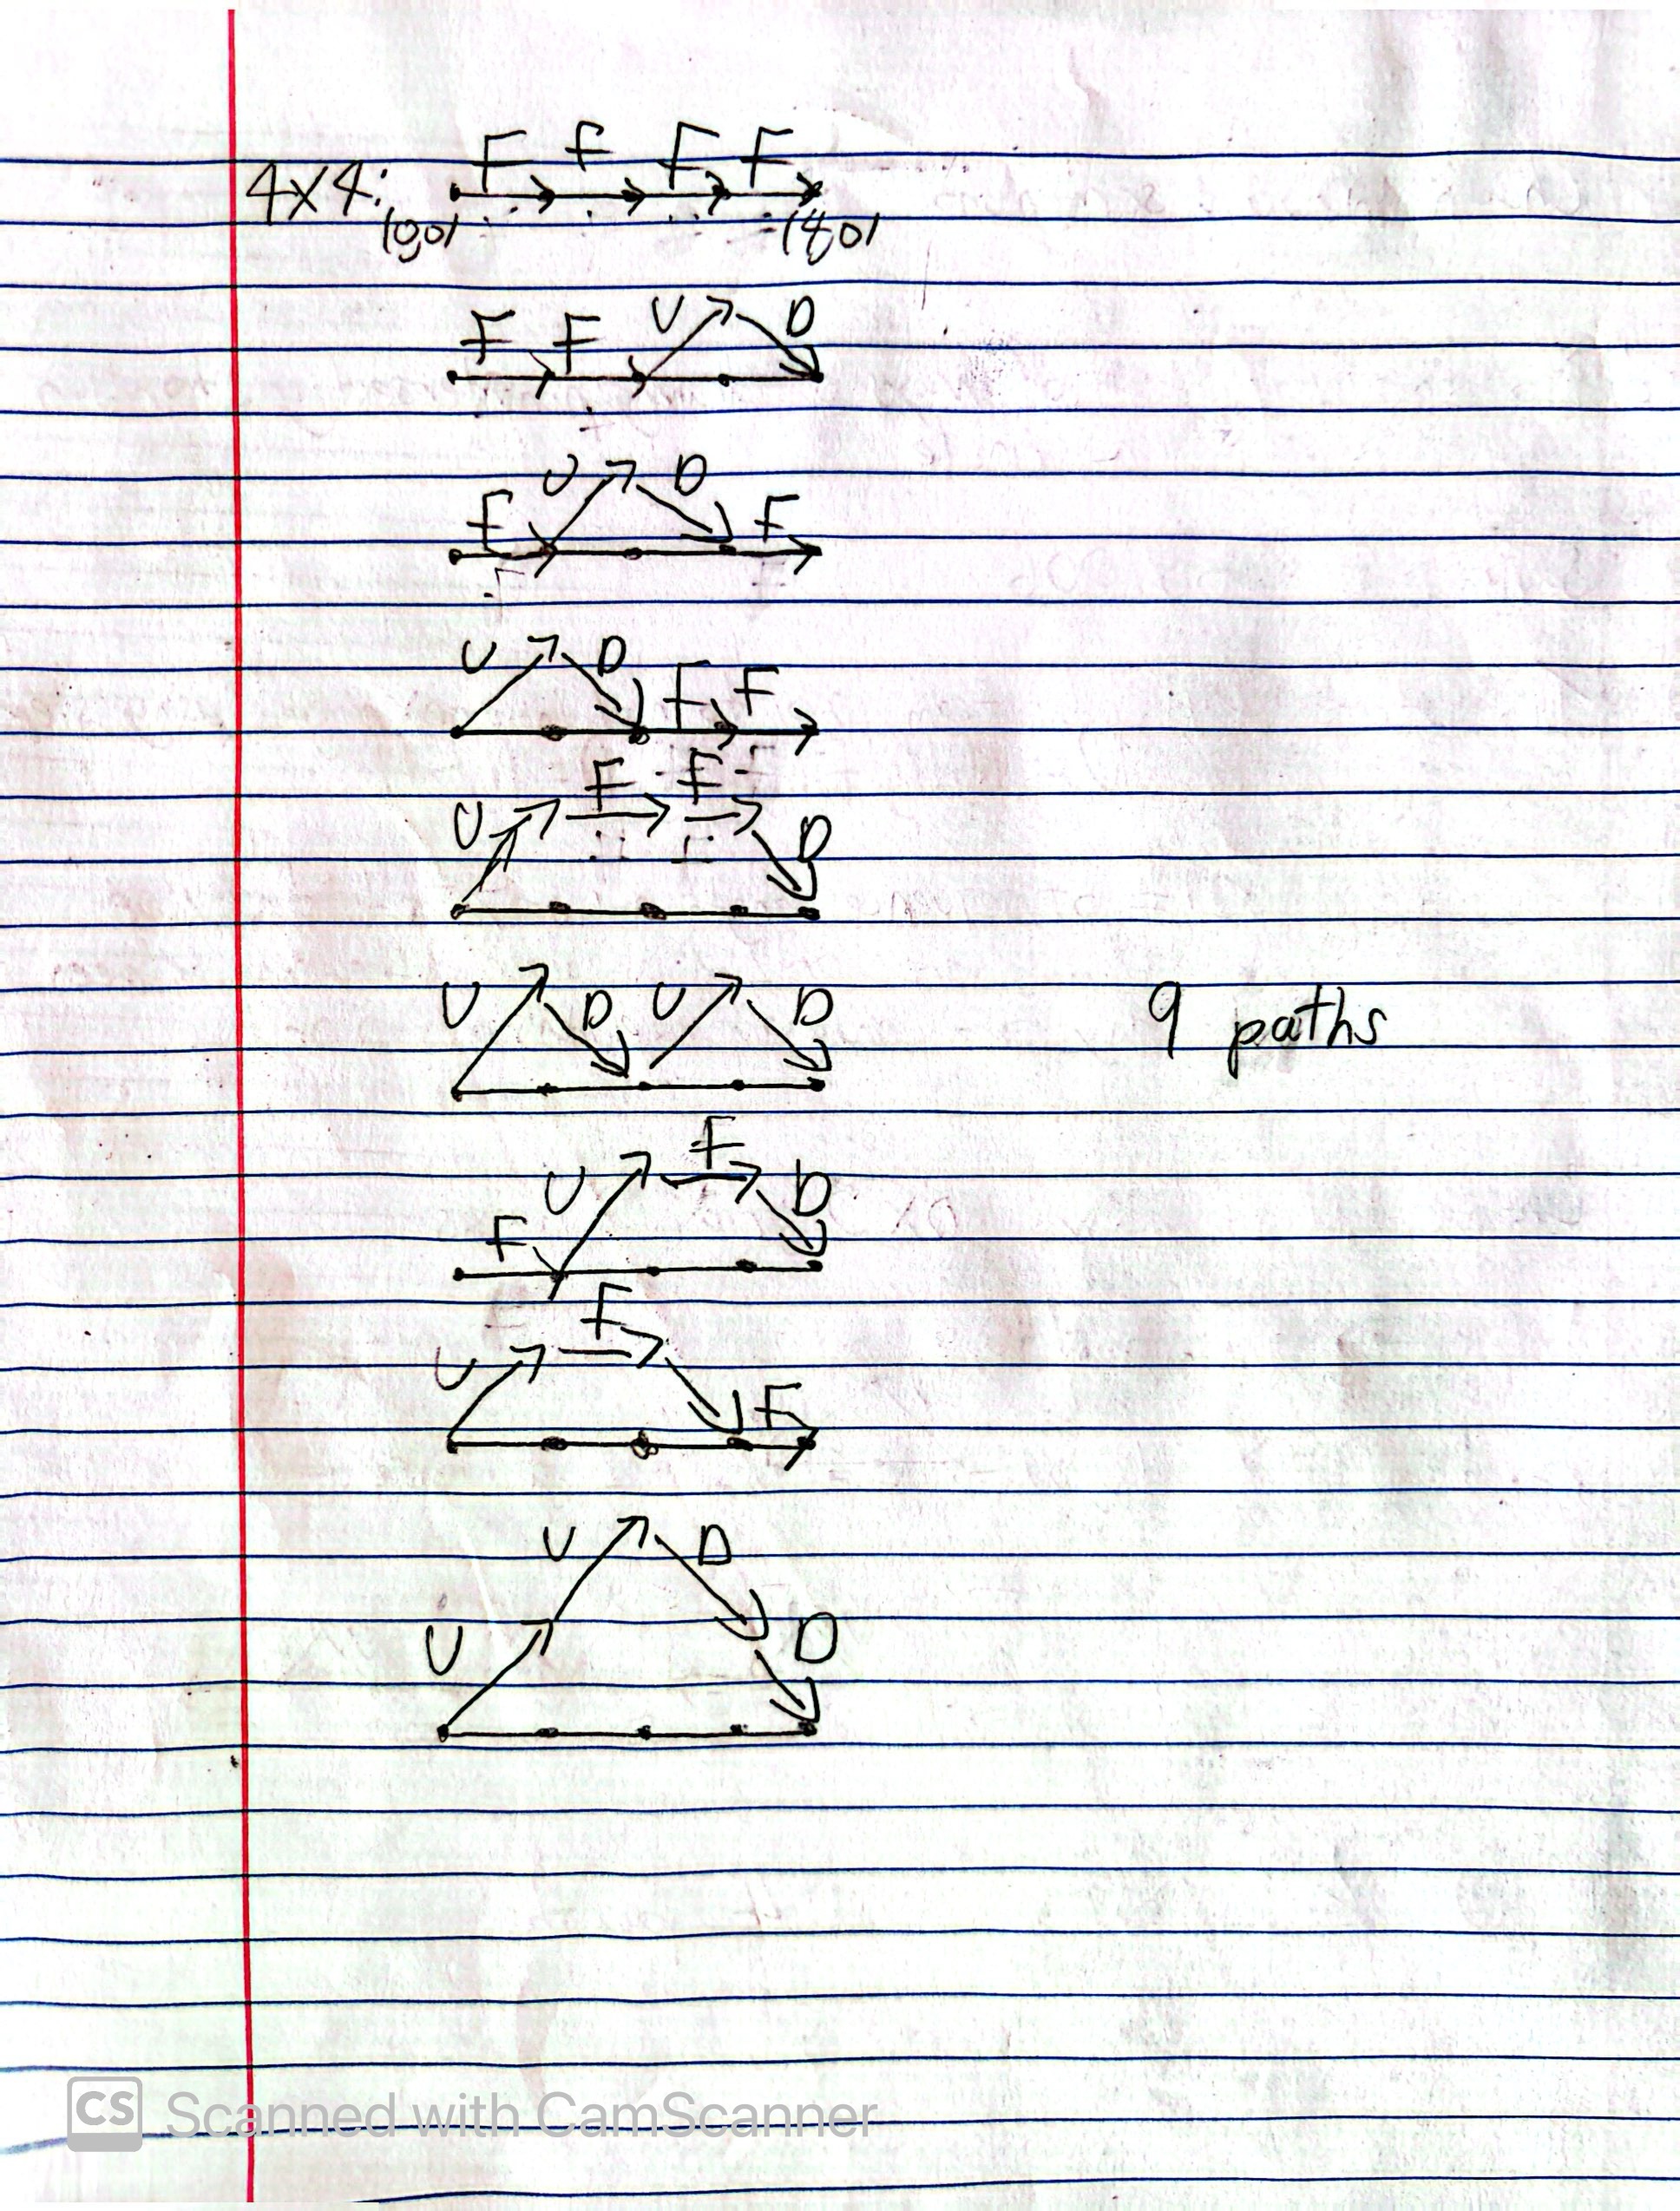 4x4: F f F F
(0,0) (4,0)
F F U D
F U D F
U D F F
U F F D
U D U D
9 paths
F U F D
U F F
U U D D
CS Scanned with CamScanner